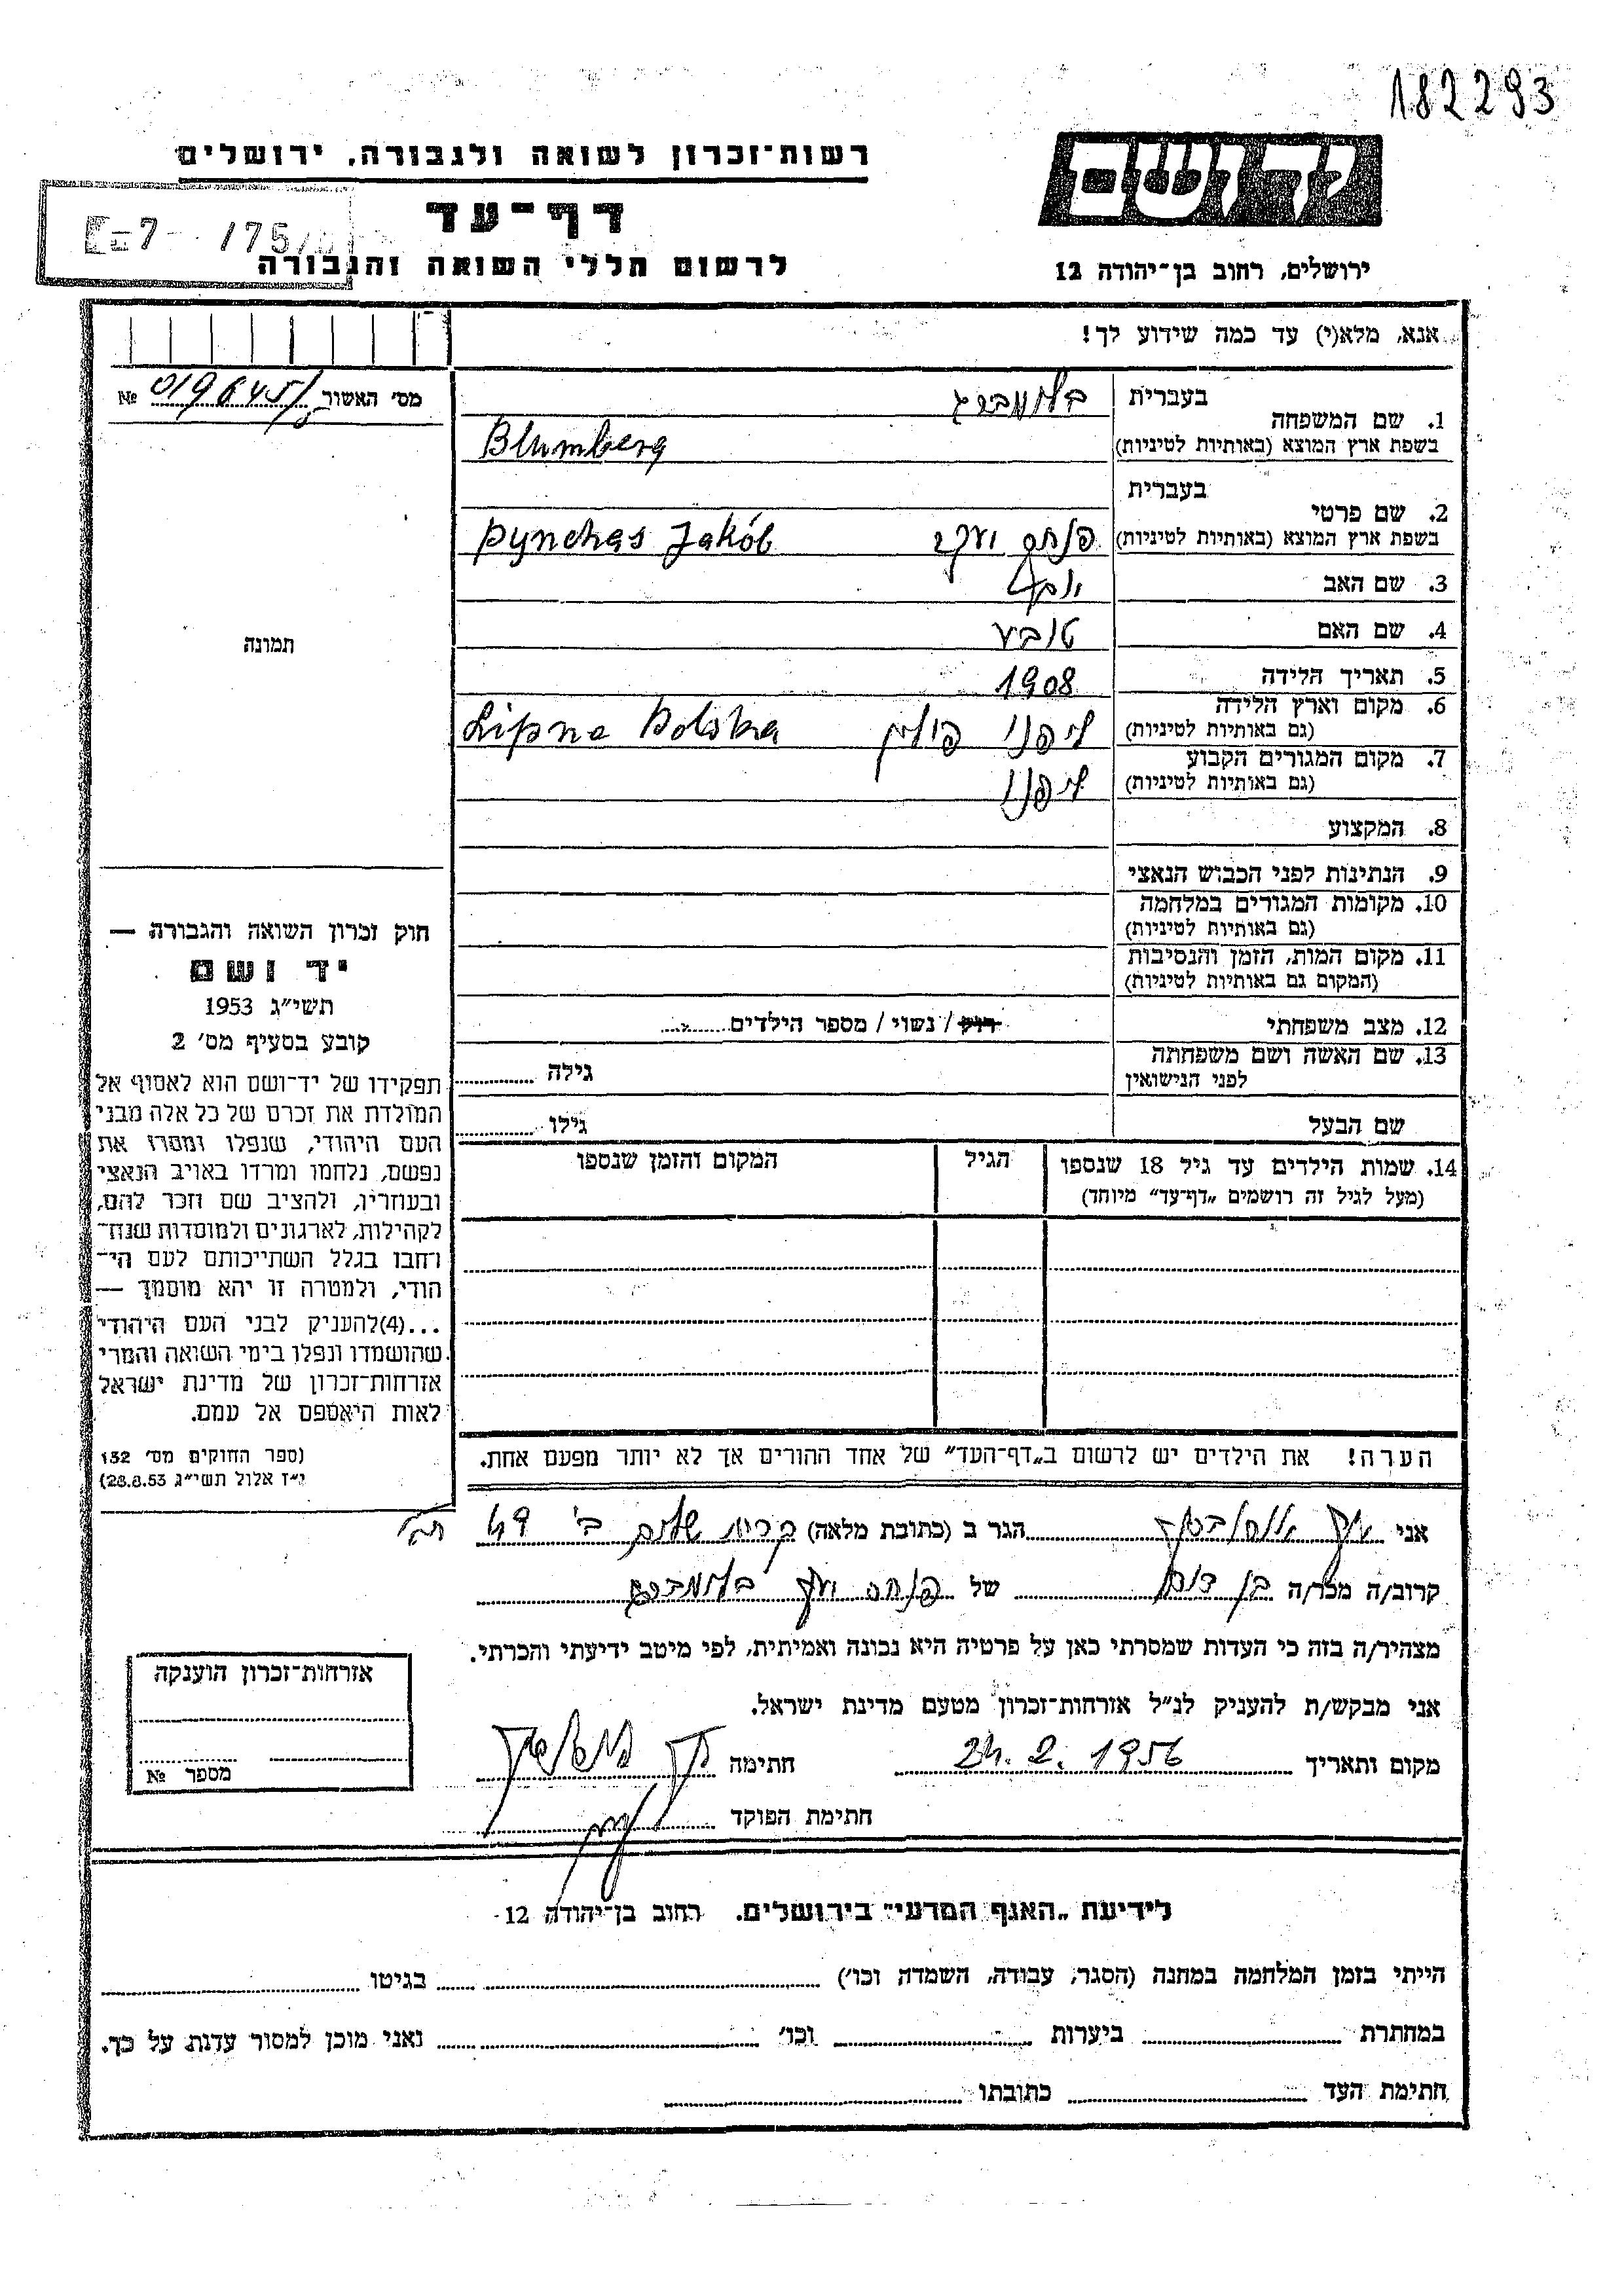 182293
רשות־זכרון לשואה ולגבורה, ירושלים
יד ושם
דף־עד
לרשום חללי השואה והגבורה
ירושלים, רחוב בן־יהודה 12
אנא, מלא(י) עד כמה שידוע לך!
מס׳ האשור № 0196451
1. שם המשפחה
בעברית בלומברג
בשפת ארץ המוצא (באותיות לטיניות) Blumberg
2. שם פרטי
בעברית
בשפת ארץ המוצא (באותיות לטיניות) פנחס יעקב Pynchas Jakób
3. שם האב
4. שם האם טובע
5. תאריך הלידה 1908
6. מקום וארץ הלידה
(גם באותיות לטיניות) ליפנו פולין Lipno Polska
7. מקום המגורים הקבוע
(גם באותיות לטיניות) ליפנו
8. המקצוע
9. הנתינות לפני הכבוש הנאצי
10. מקומות המגורים במלחמה
(גם באותיות לטיניות)
11. מקום המות, הזמן והנסיבות
(המקום גם באותיות לטיניות)
12. מצב משפחתי רווק / נשוי / מספר הילדים
13. שם האשה ושם משפחתה
לפני הנישואין גילה
שם הבעל גילו
14. שמות הילדים עד גיל 18 שנספו הגיל המקום והזמן שנספו
(מעל לגיל זה רושמים „דף־עד״ מיוחד)
הערה! את הילדים יש לרשום ב„דף־העד״ של אחד ההורים אך לא יותר מפעם אחת.
תמונה
חוק זכרון השואה והגבורה —
יד ושם
תשי״ג 1953
קובע בסעיף מס׳ 2
תפקידו של יד־ושם הוא לאסוף אל
המולדת את זכרם של כל אלה מבני
העם היהודי, שנפלו ומסרו את
נפשם, נלחמו ומרדו באויב הנאצי
ובעוזריו, ולהציב שם וזכר להם,
לקהילות, לארגונים ולמוסדות שנח־
רחבו בגלל השתייכותם לעם הי־
הודי, ולמטרה זו יהא מוסמך —
...(4)להעניק לבני העם היהודי
שהושמדו ונפלו בימי השואה והמרי
אזרחות־זכרון של מדינת ישראל
לאות היאספם אל עמם.
(ספר החוקים מס׳ 132
י״ז אלול תשי״ג 28.8.53)
אני הגר ב (כתובת מלאה) קרית שלום ב׳
קרוב/ה מכר/ה בן דוד של פנחס יעקב בלומברג
מצהיר/ה בזה כי העדות שמסרתי כאן על פרטיה היא נכונה ואמיתית, לפי מיטב ידיעתי והכרתי.
אני מבקש/ת להעניק לנ״ל אזרחות־זכרון מטעם מדינת ישראל.
מקום ותאריך 24. 2. 1956 חתימה
חתימת הפוקד
אזרחות־זכרון הוענקה
מספר №
לידיעת „האגף המדעי״ בירושלים. רחוב בן־יהודה 12
הייתי בזמן המלחמה במחנה (הסגר, עבודה, השמדה וכו׳) בגיטו
במחתרת ביערות וכו׳ ואני מוכן למסור עדות על כך.
חתימת העד כתובתו